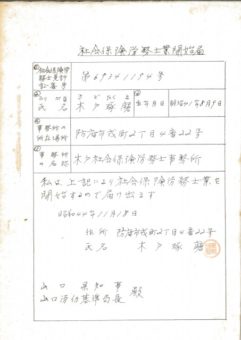 社会保険労務士業開始届
社会保険労務士免許証番号
第6934119A号
氏名
木戸琢磨
生年月日
昭和21年8月9日
事務所の所在場所
防府市戎町2丁目4番22号
事務所の名称
木戸社会保険労務士事務所
私は上記により社会保険労務士業を
開始するので届け出ます
昭和44年11月18日
住所 防府市戎町2丁目4番22号
氏名 木戸琢磨
山口県知事
山口労働基準局長 殿